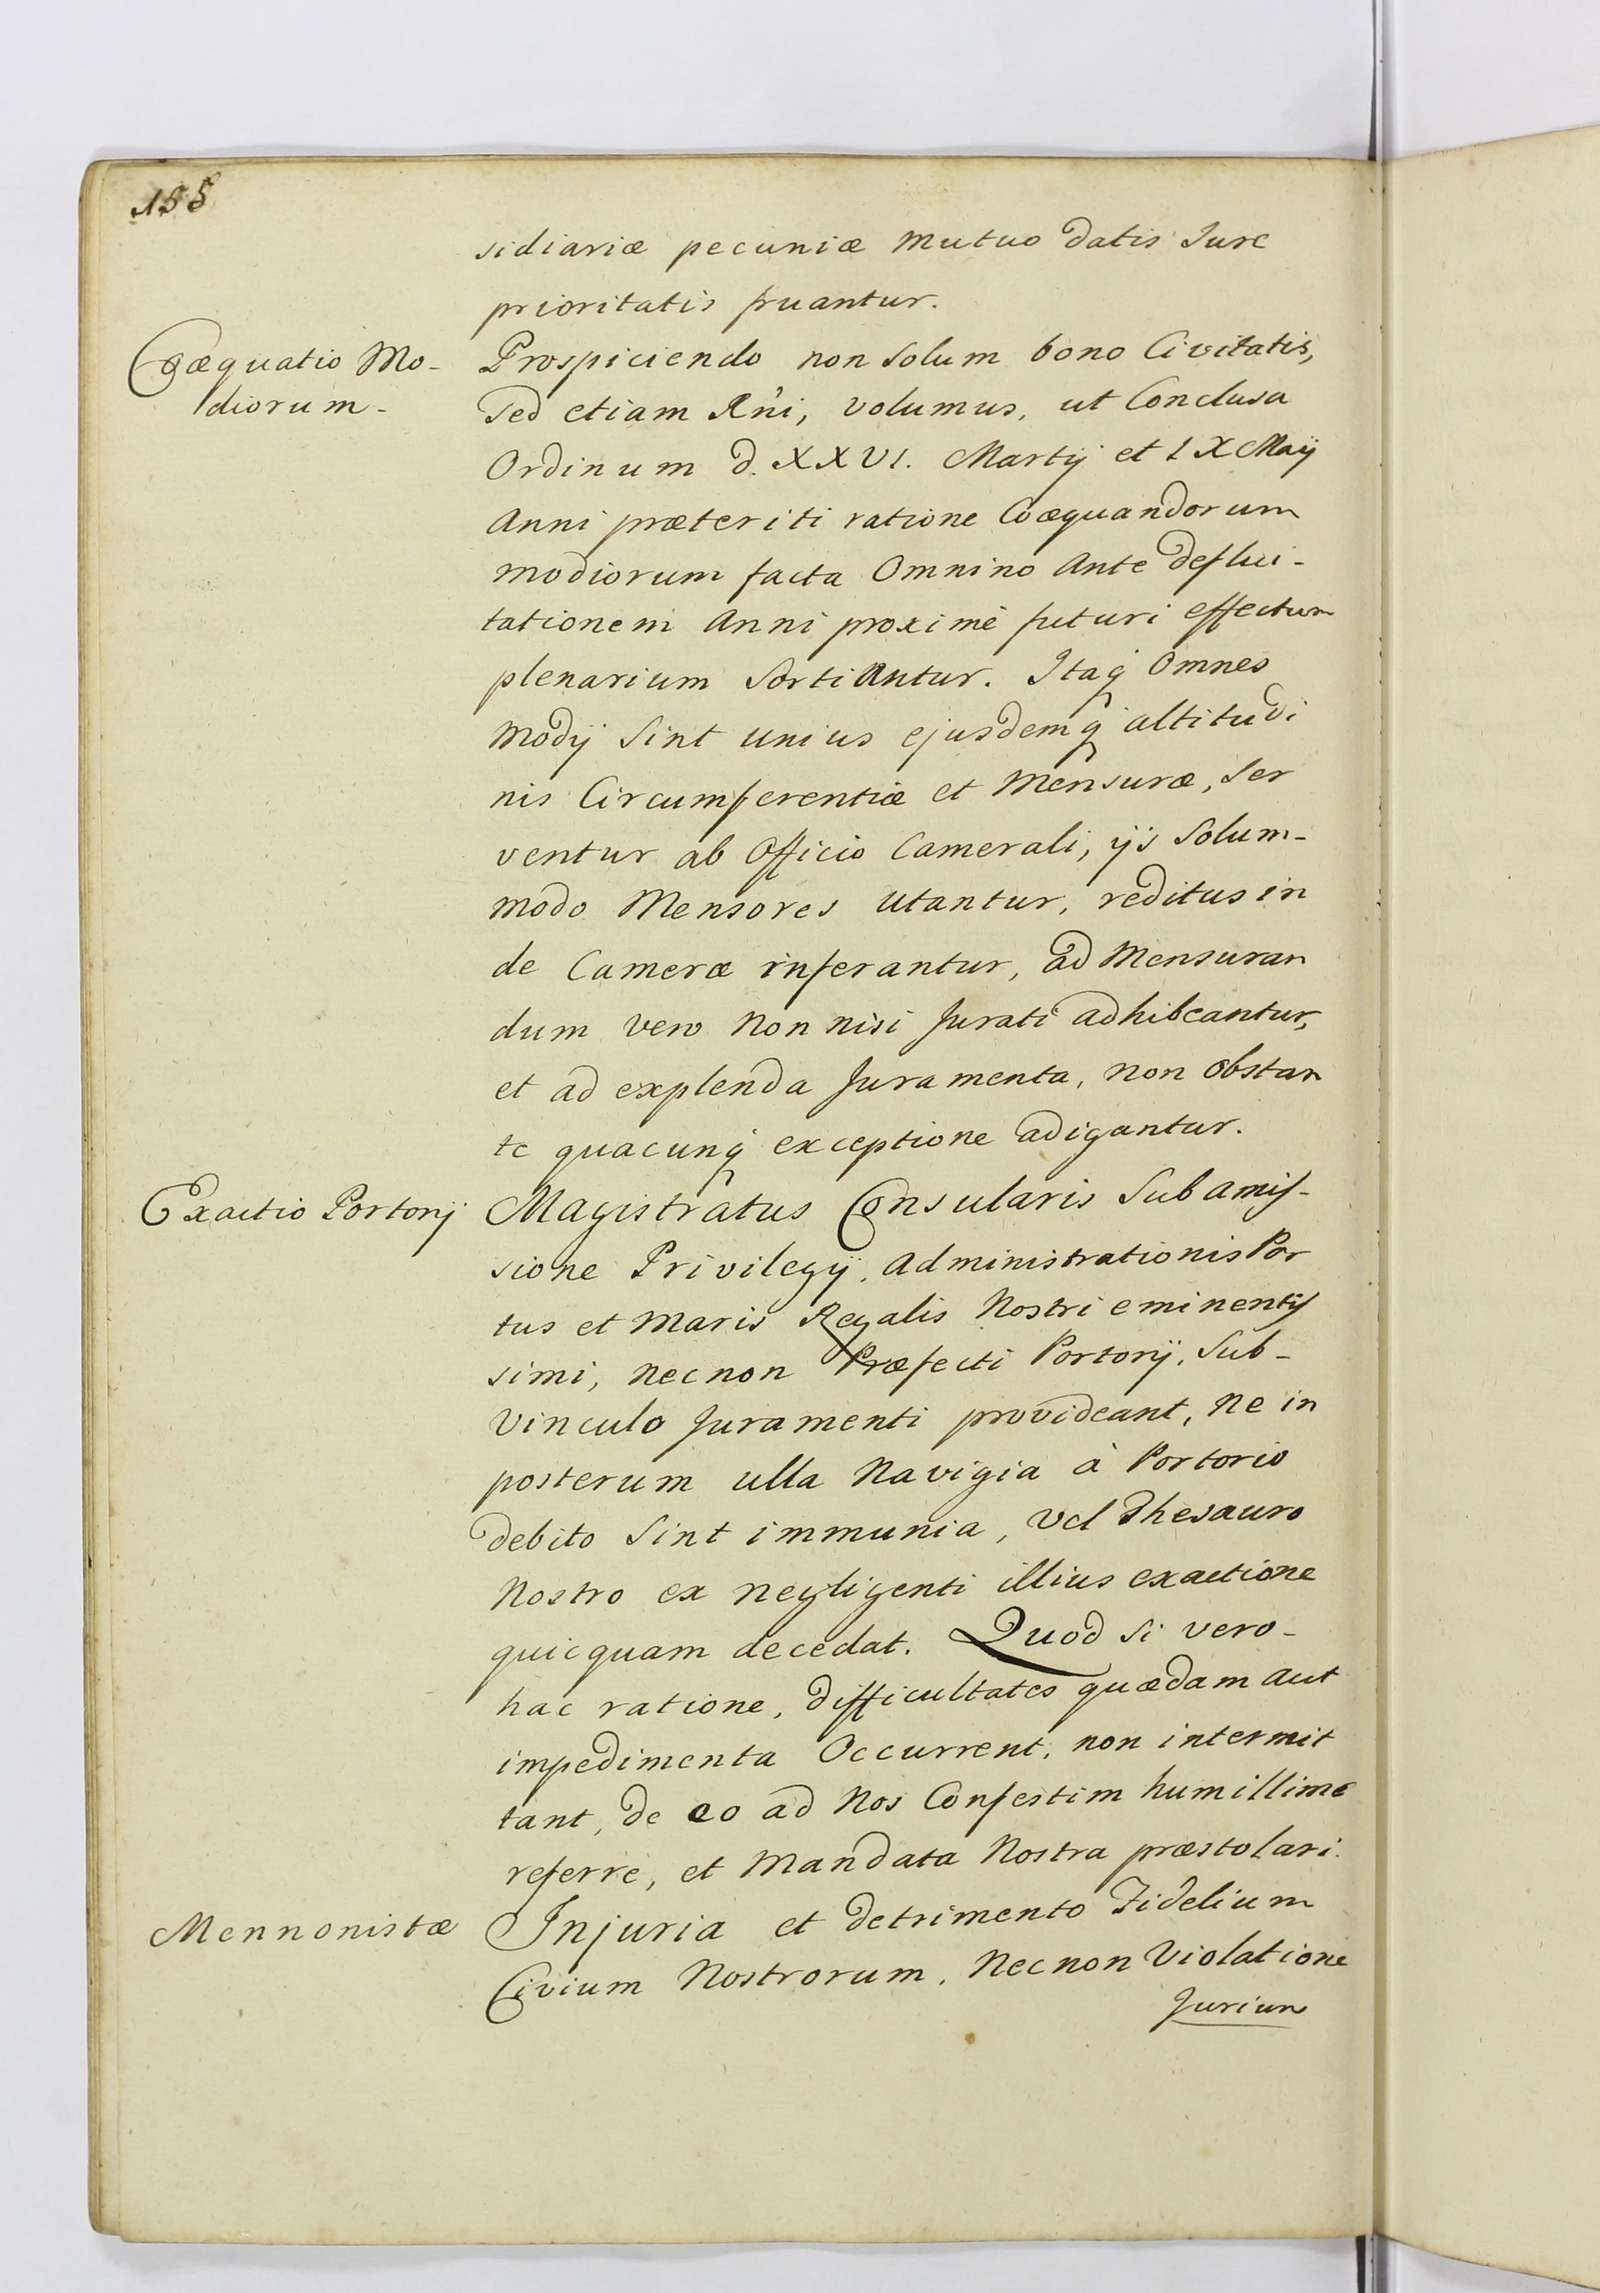 155
sidiariæ pecuniæ mutuo datis Jure
prioritatis fruantur.
Coæquatio Mo-
diorum-
Prospiciendo non Solum bono Civitatis,
Sed etiam Rñi, volumus, ut Conclusa
Ordinum d. XXVI. Martÿ et IX Maÿ
Anni præteriti ratione Coæquandorum
modiorum facta Omnino Ante deflui-
tationem Anni proximè futuri effectum
plenarium Sortiantur. Itaq̀ Omnes
Modÿ Sint unius ejusdemq̀ altitudi
nis Circumferentiæ et Mensuræ, Ser
ventur ab Officio Camerali, ÿs Solum-
modo Mensores utantur, reditus in
de Cameræ inferantur, ad Mensuran
dum vero Non nisi Jurati adhibeantur,
et ad explenda Juramenta, non obstan
te quacunq̀ exceptione adigantur.
Exactio Portorÿ
Magistratus Consularis Sub amis-
sione Privilegÿ, Administrationis Por
tus et Maris Regalis Nostri eminentis
simi, Necnon Præfecti Portorÿ, Sub-
Vinculo Juramenti provideant, Ne in
posterum ulla Navigia à Portorio
debito Sint immunia, Vel Thesauro
Nostro ex negligenti illius exactione
quicquam decedat. Quod si vero-
hac ratione, difficultates quædam aut
impedimenta Occurrent, non intermit
tant, de eo ad Nos Confestim humillime
referre, et Mandata Nostra præstolari.
Mennonistæ
Injuria et detrimento Fidelium
Civium Nostrorum, Necnon Violatione
Jurium